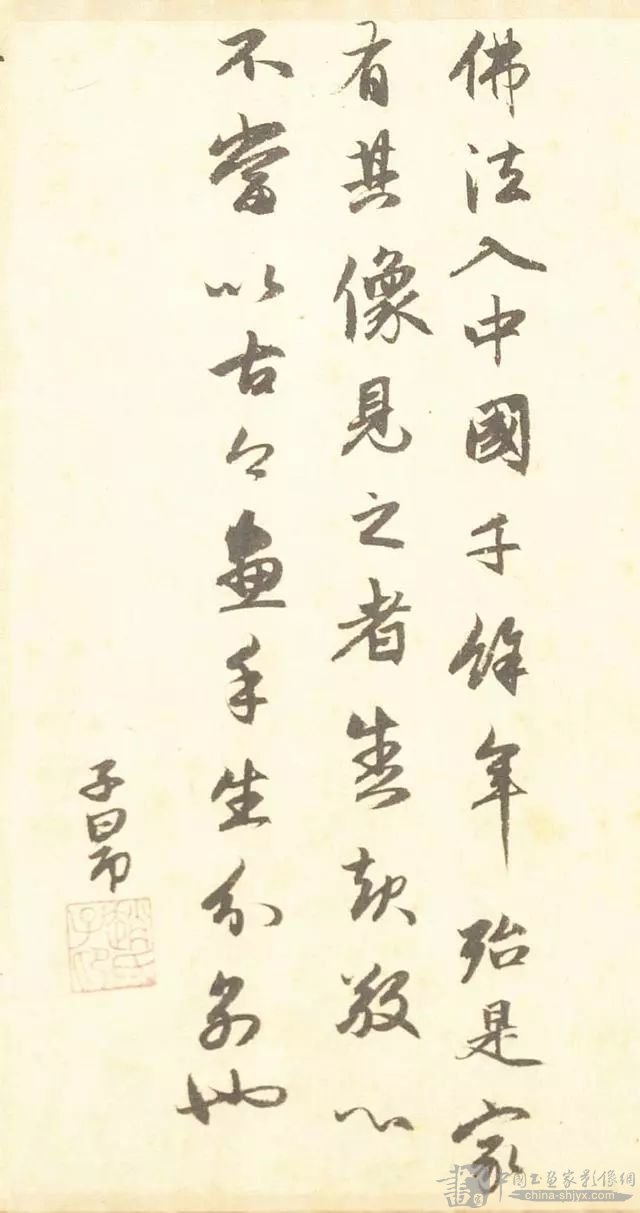 佛法入中國千餘年殆是家
有其像見之者起敬心
不當以古今畫手生分別也
子昂
趙氏子昂
中國书画家影像網
china-shjyx.com